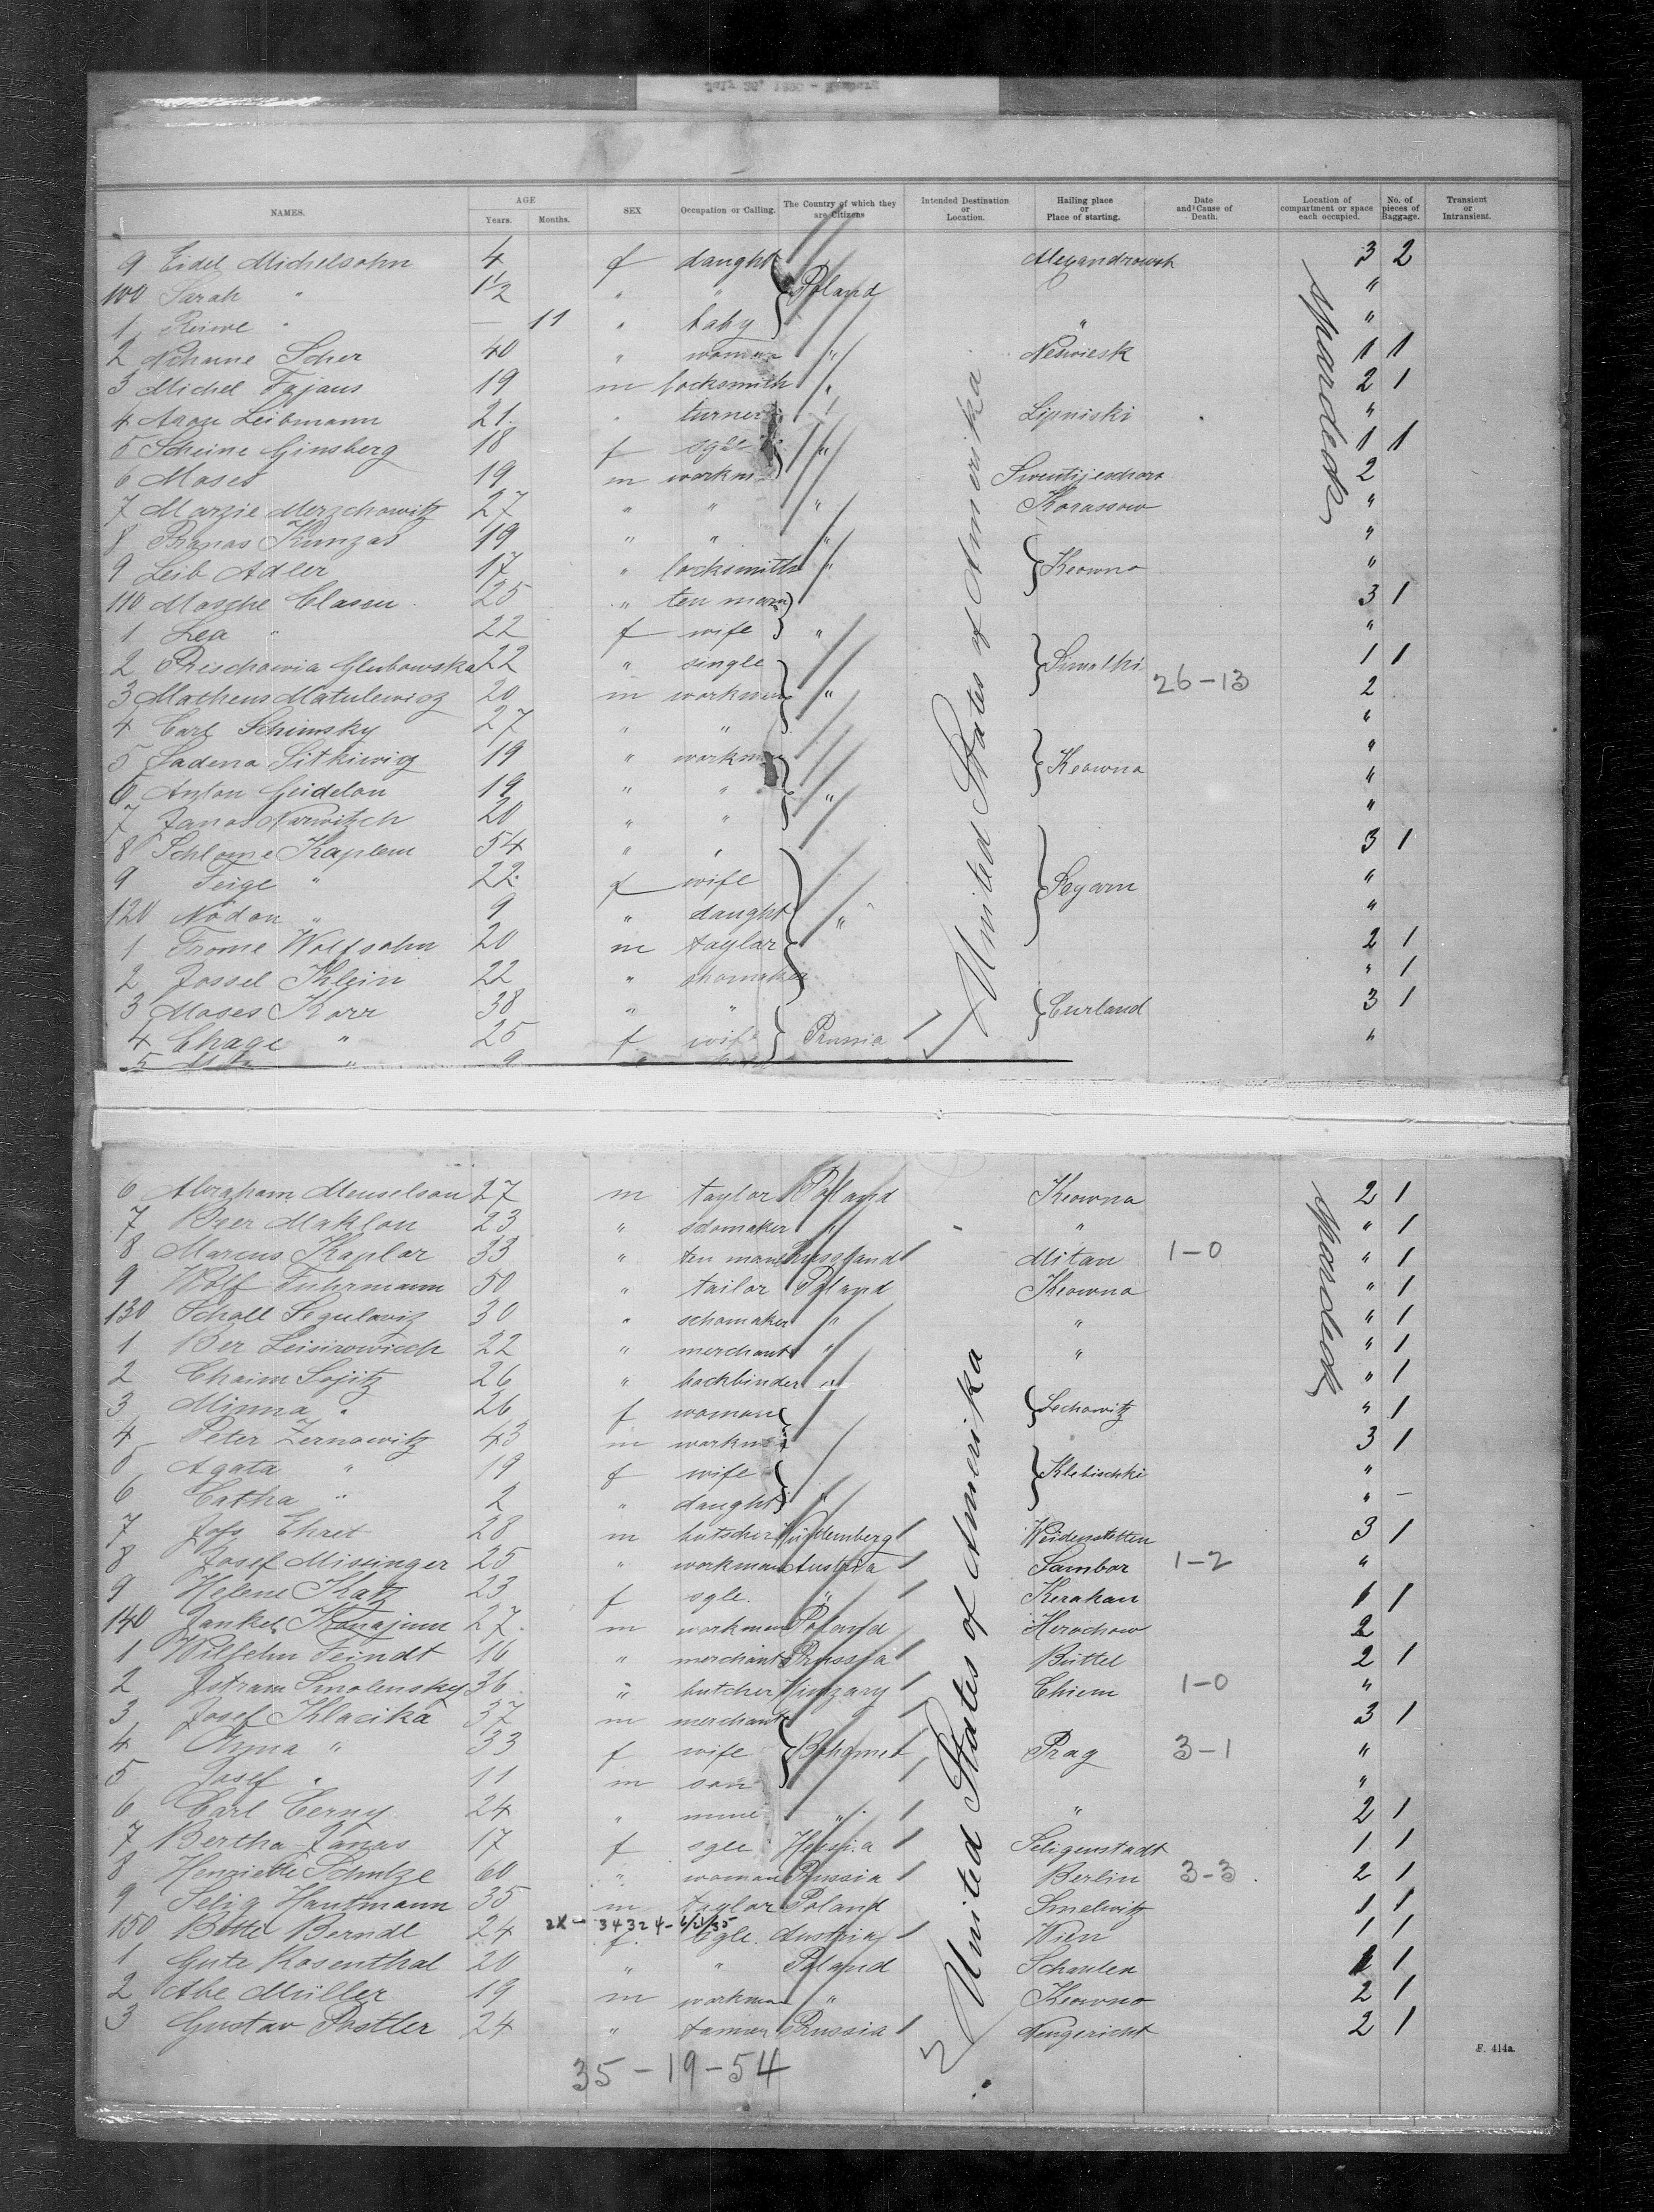 NAMES. AGE Years. Months. SEX Occupation or Calling. The Country of which they are Citizens Intended Destination or Location. Hailing place or Place of starting. Date and Cause of Death. Location of compartment or space each occupied. No. of pieces of Baggage. Transient or Intransient.
9 Eidel Michelsohn 4 f daught Alexandrowsk 3 2
100 Sarah " 1 1/2 " " Poland "
1 " — 11 " baby " "
2 Scher 40 " woman " Neswiesk 1 1
3 Michel Fajans 19 m locksmith " 2 1
4 Aron Leibmann 21. " turner Lipniski "
5 Scheine Ginsberg 18 f sgle " 1 1
6 Moses 19 m workm 2
7 Marzie Merzchowitz 27 " " " Korassow "
8 Kunzas 19 " " " "
9 Leib Adler 17 " locksmith " Keowno "
110 Mosche Clasen 25 " ten man 3 1
1 Lea " 22 f wife " "
2 Glubowska 22 " single Suwalki 1 1
3 Matheus Matulewicz 20 m workmen " 26-13 2
4 Carl Schimsky 27 " " "
5 Sadena Sitkiwicz 19 " workm "
6 Anton Geidelou 19 " " " Keowna "
7 Janos Narwitzch 20 " " "
8 Schlome Kaplem 54 " " 3 1
9 Feige " 22. f wife Seyarn "
120 Nodon " 9 " daught " "
1 Frome Wolfsohn 20 m taylar 2 1
2 Jossel Klein 22 " shomaker " 1
3 Moses Korr 38 " " Curland 3 1
4 Chage " 25 f wife Russia "
5 " 9 "
United States of Amerika
sparsdeck
6 Abraham Meuselson 27 m taylor Poland Keowna 2 1
7 Beer Maklon 23 " sdomaker " " " 1
8 Marcus Kaplar 33 " ten man Russland Mitau 1-0 " 1
9 Wolf Fuhrmann 50 " tailor Poland Keowna " 1
130 Scholl Segulowiz 30 " schomaker " " " 1
1 Ber Leisirowicch 22 " merchant " " " 1
2 Chaim Sojitz 26 " bochbinder " " 1
3 Minna " 26 f woman Lechowitz " 1
4 Peter Zernowitz 43 m workm 3 1
5 Agata " 19 f wife Klebischki "
6 Catha " 2 " daught " " —
7 Jofs Ehret 28 m butscher Würtemberg Weidenstetten 3 1
8 Josef Missinger 25 " workman Austria Sambor 1-2 "
9 Helene Katz 23 f sgle. " Kerakau 1 1
140 Jankel 27. m workmen Poland Herochow 2
1 Wilhelm Feindt 16 " merchant Prussia Büttel 2 1
2 Smolensky 36. " butcher Hungary Chiem 1-0 "
3 Josef Klacika 37 m merchant 3 1
4 Anna " 33 f wife Prag 3-1 "
5 Josef " 11 m son "
6 Carl Cerny 24 " " " 2 1
7 Bertha 17 f sgle Hessia Seligenstadt 1 1
8 Henriette Schulze 60 " woman Prussia Berlin 3-3 2 1
9 Selig Hautmann 35 m taylor Poland Smelwitz 1 1
2X - 34324-
150 Bette Berndl 24 f. sgle. Austria Wien 1 1
1 Gute Rosenthal 20 " " Poland Schaulen 1 1
2 Abe Müller 19 m workman " Keowno 2 1
3 Gustav Postler 24 " tanner Prussia Neugericht 2 1
United States of Amerika
sparsdeck
35-19-54
F. 414a.